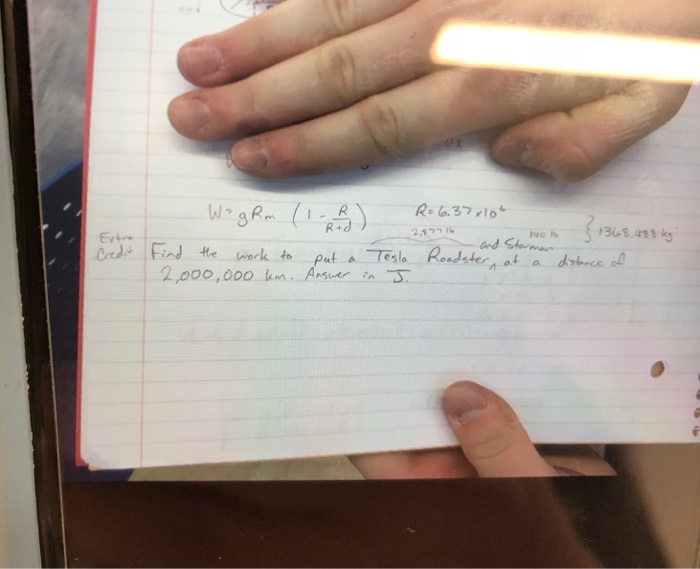 W = gRm (1 - R/(R+d)) R = 6.37 x 10⁶
2,877 lb 140 lb } 1368.488 kg
Extra Credit Find the work to put a Tesla Roadster and Starman at a distance of
2,000,000 km. Answer in J.